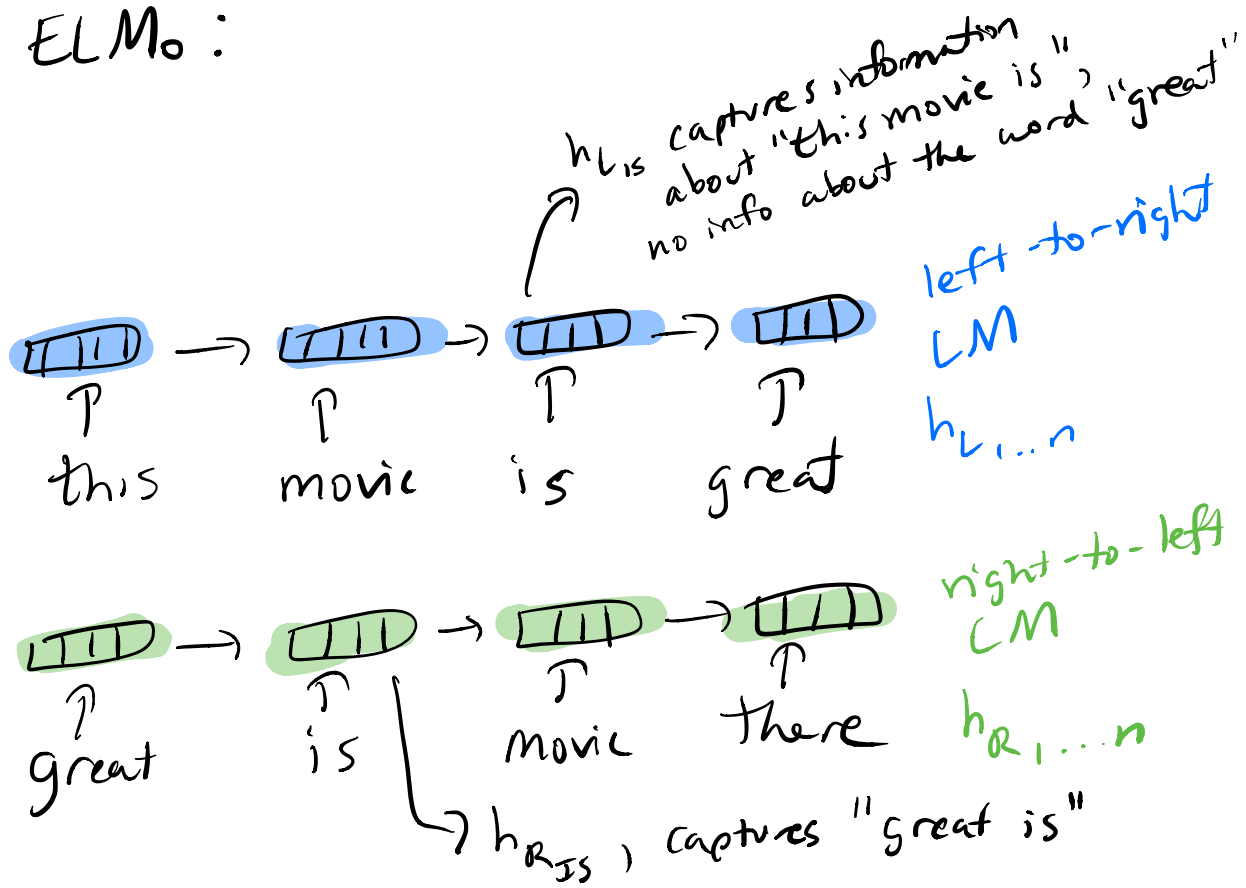 ELMo :
h_L_is captures information
about "this movie is",
no info about the word "great"
left-to-right
LM
h_L 1...n
this movie is great
right-to-left
LM
h_R 1...n
great is movie there
h_R_IS, captures "great is"